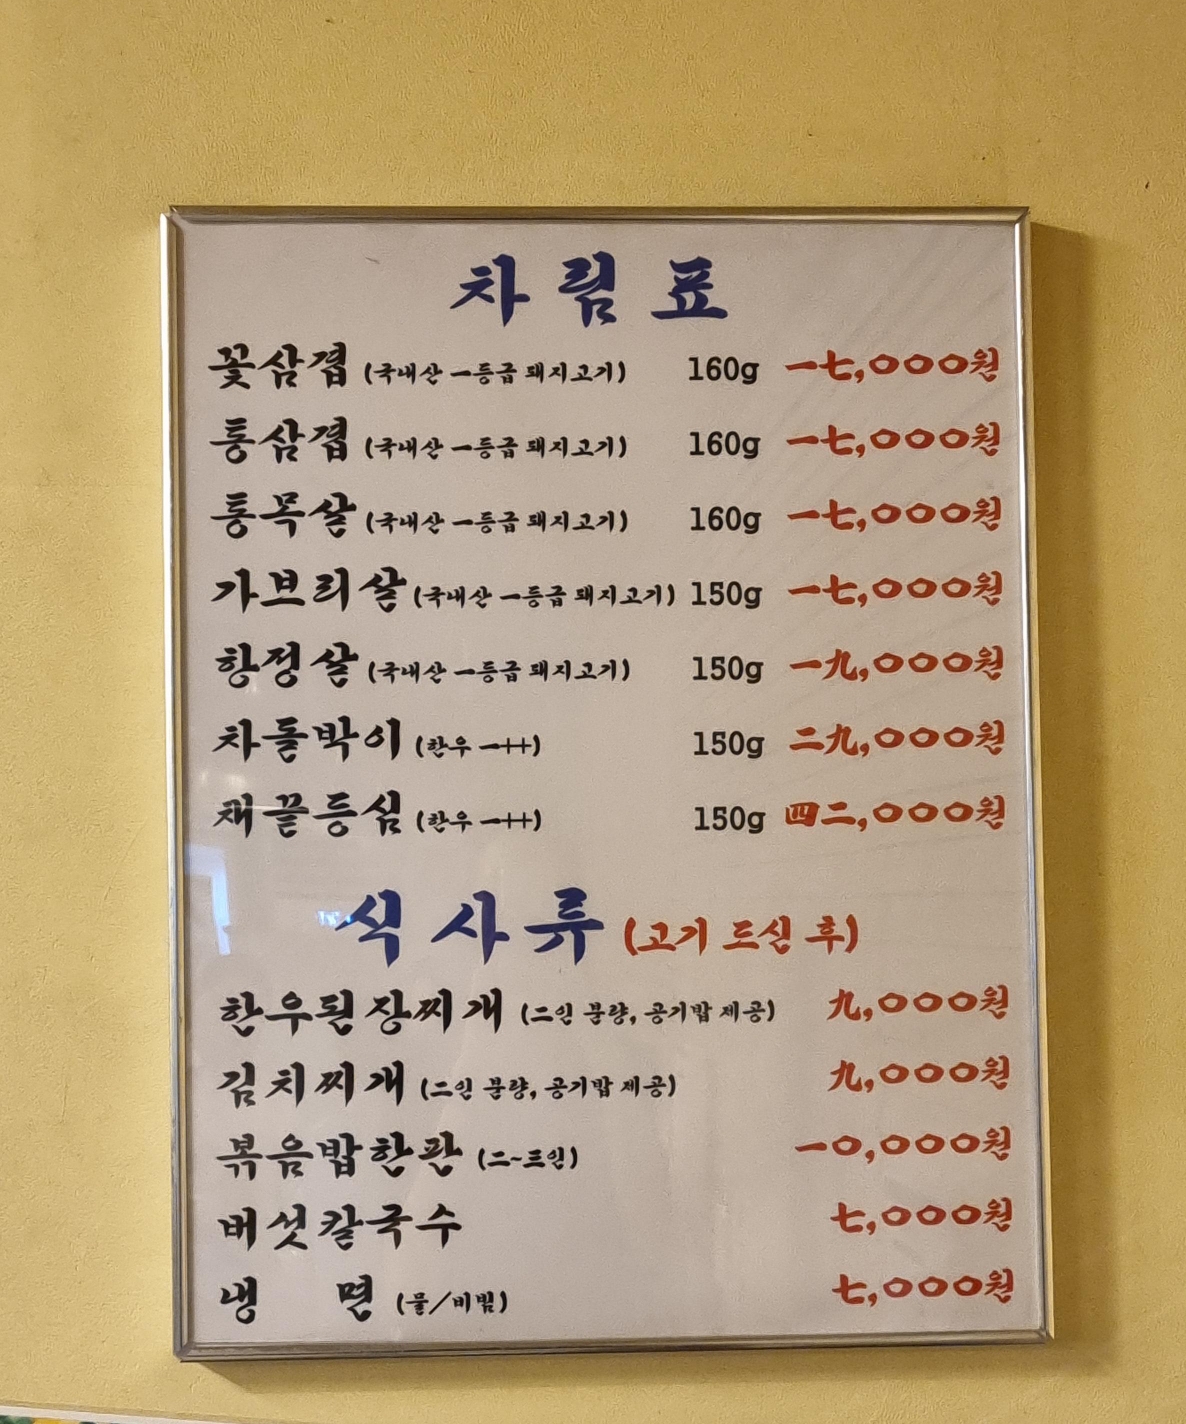 차림표
꽃삼겹 (국내산 一등급 돼지고기) 160g 一七,○○○원
통삼겹 (국내산 一등급 돼지고기) 160g 一七,○○○원
통목살 (국내산 一등급 돼지고기) 160g 一七,○○○원
가브리살 (국내산 一등급 돼지고기) 150g 一七,○○○원
항정살 (국내산 一등급 돼지고기) 150g 一九,○○○원
차돌박이 (한우 一++) 150g 二九,○○○원
채끝등심 (한우 一++) 150g 四二,○○○원
식사류 (고기 드신 후)
한우된장찌개 (二인 분량, 공기밥 제공) 九,○○○원
김치찌개 (二인 분량, 공기밥 제공) 九,○○○원
볶음밥한판 (二~三인) 一○,○○○원
버섯칼국수 七,○○○원
냉 면 (물/비빔) 七,○○○원